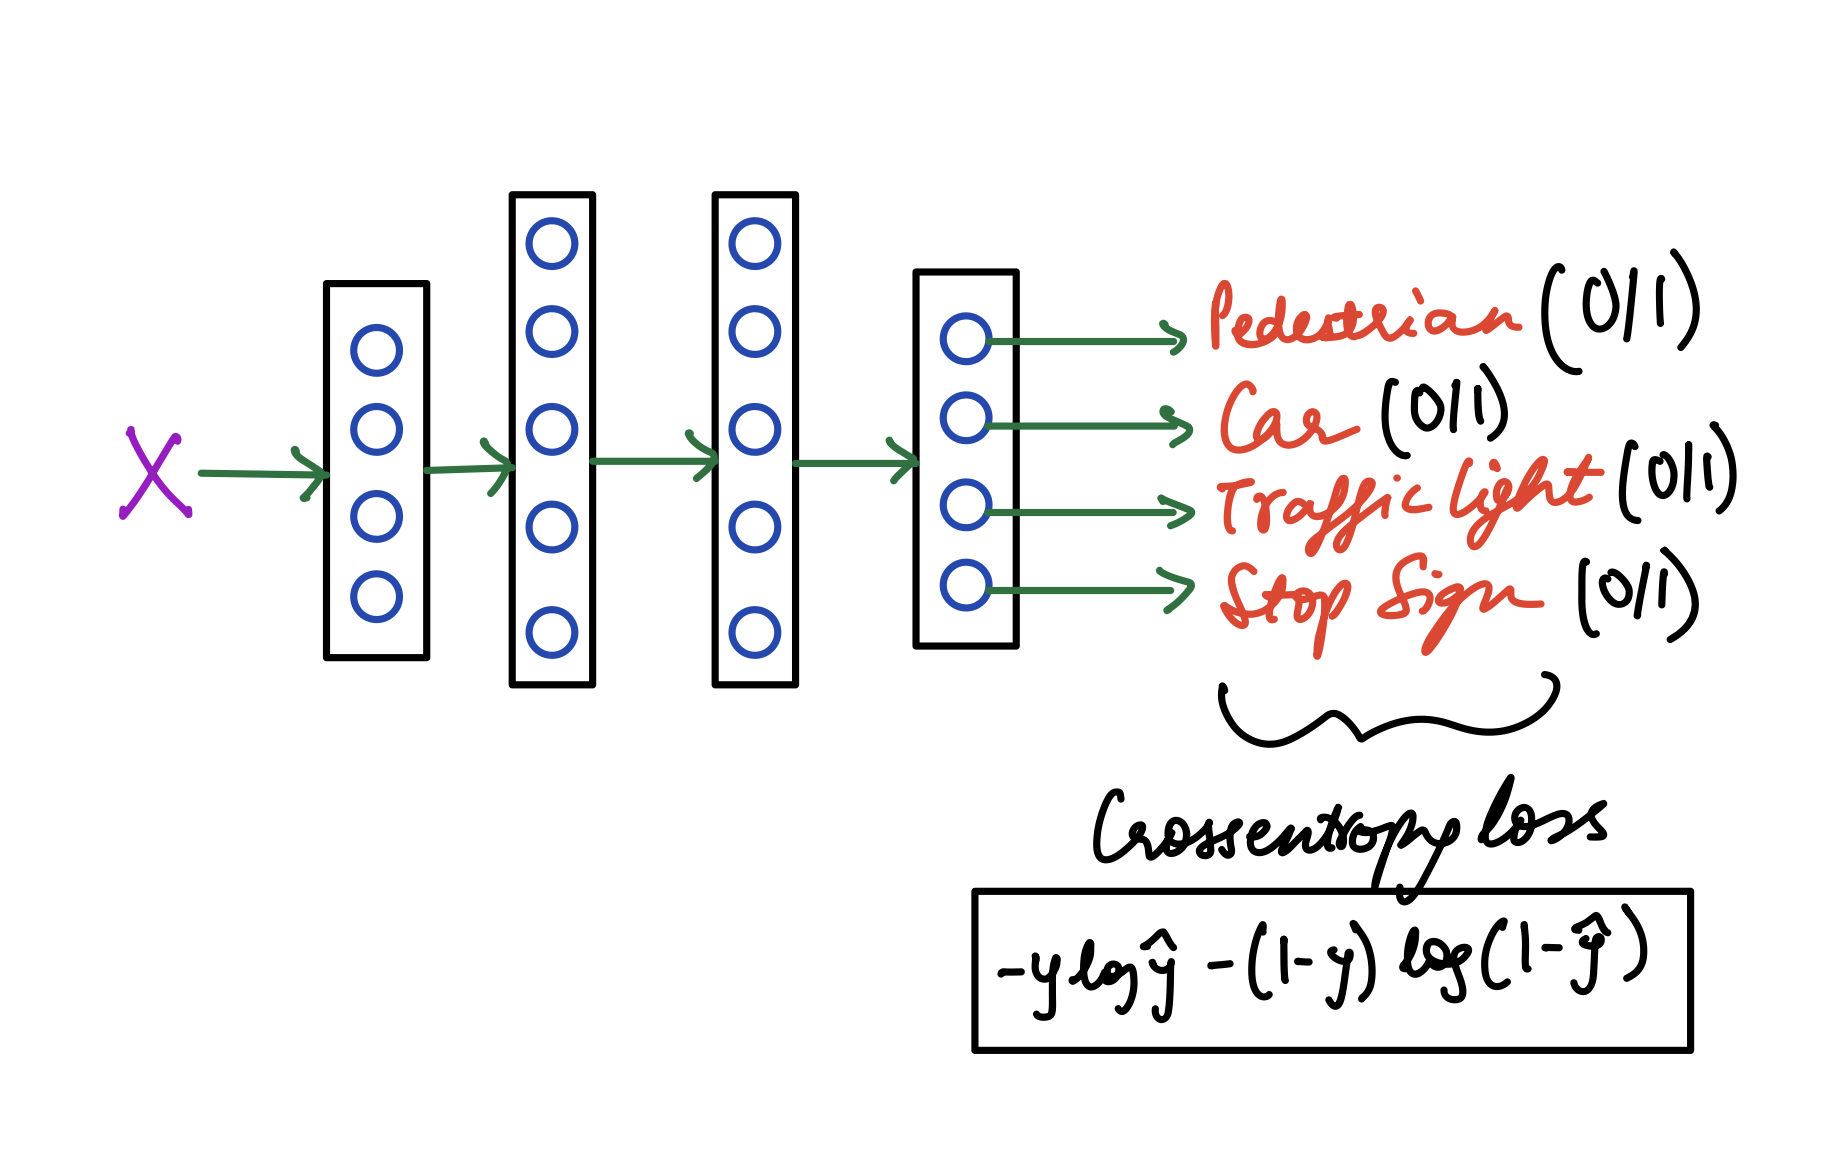 X
Pedestrian (0/1)
Car (0/1)
Traffic Light (0/1)
Stop Sign (0/1)
Crossentropy loss
-y log ŷ - (1-y) log(1-ŷ)